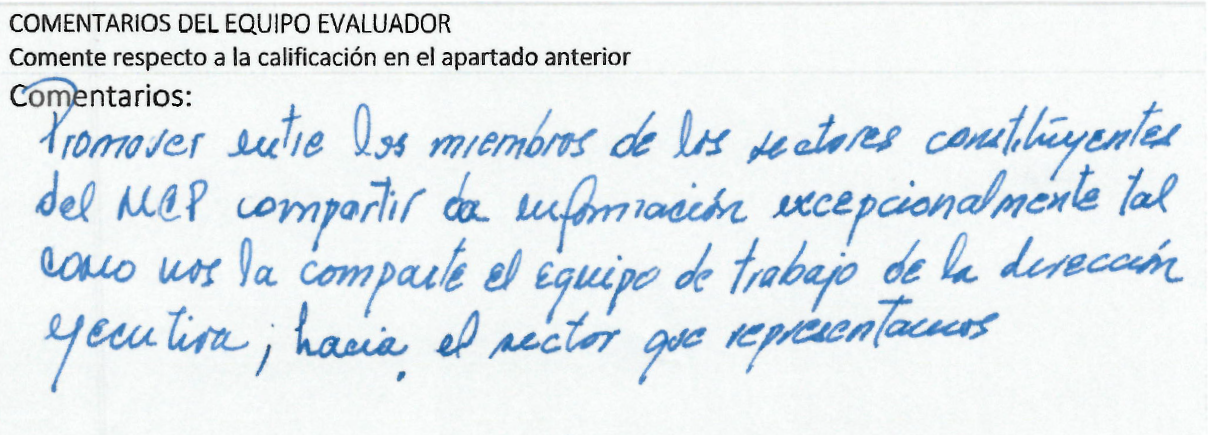 COMENTARIOS DEL EQUIPO EVALUADOR
Comente respecto a la calificación en el apartado anterior
Comentarios:
Promover entre los miembros de los sectores constituyentes
del MCP compartir la información excepcionalmente tal
como nos la comparte el equipo de trabajo de la dirección
ejecutiva; hacia el sector que representamos